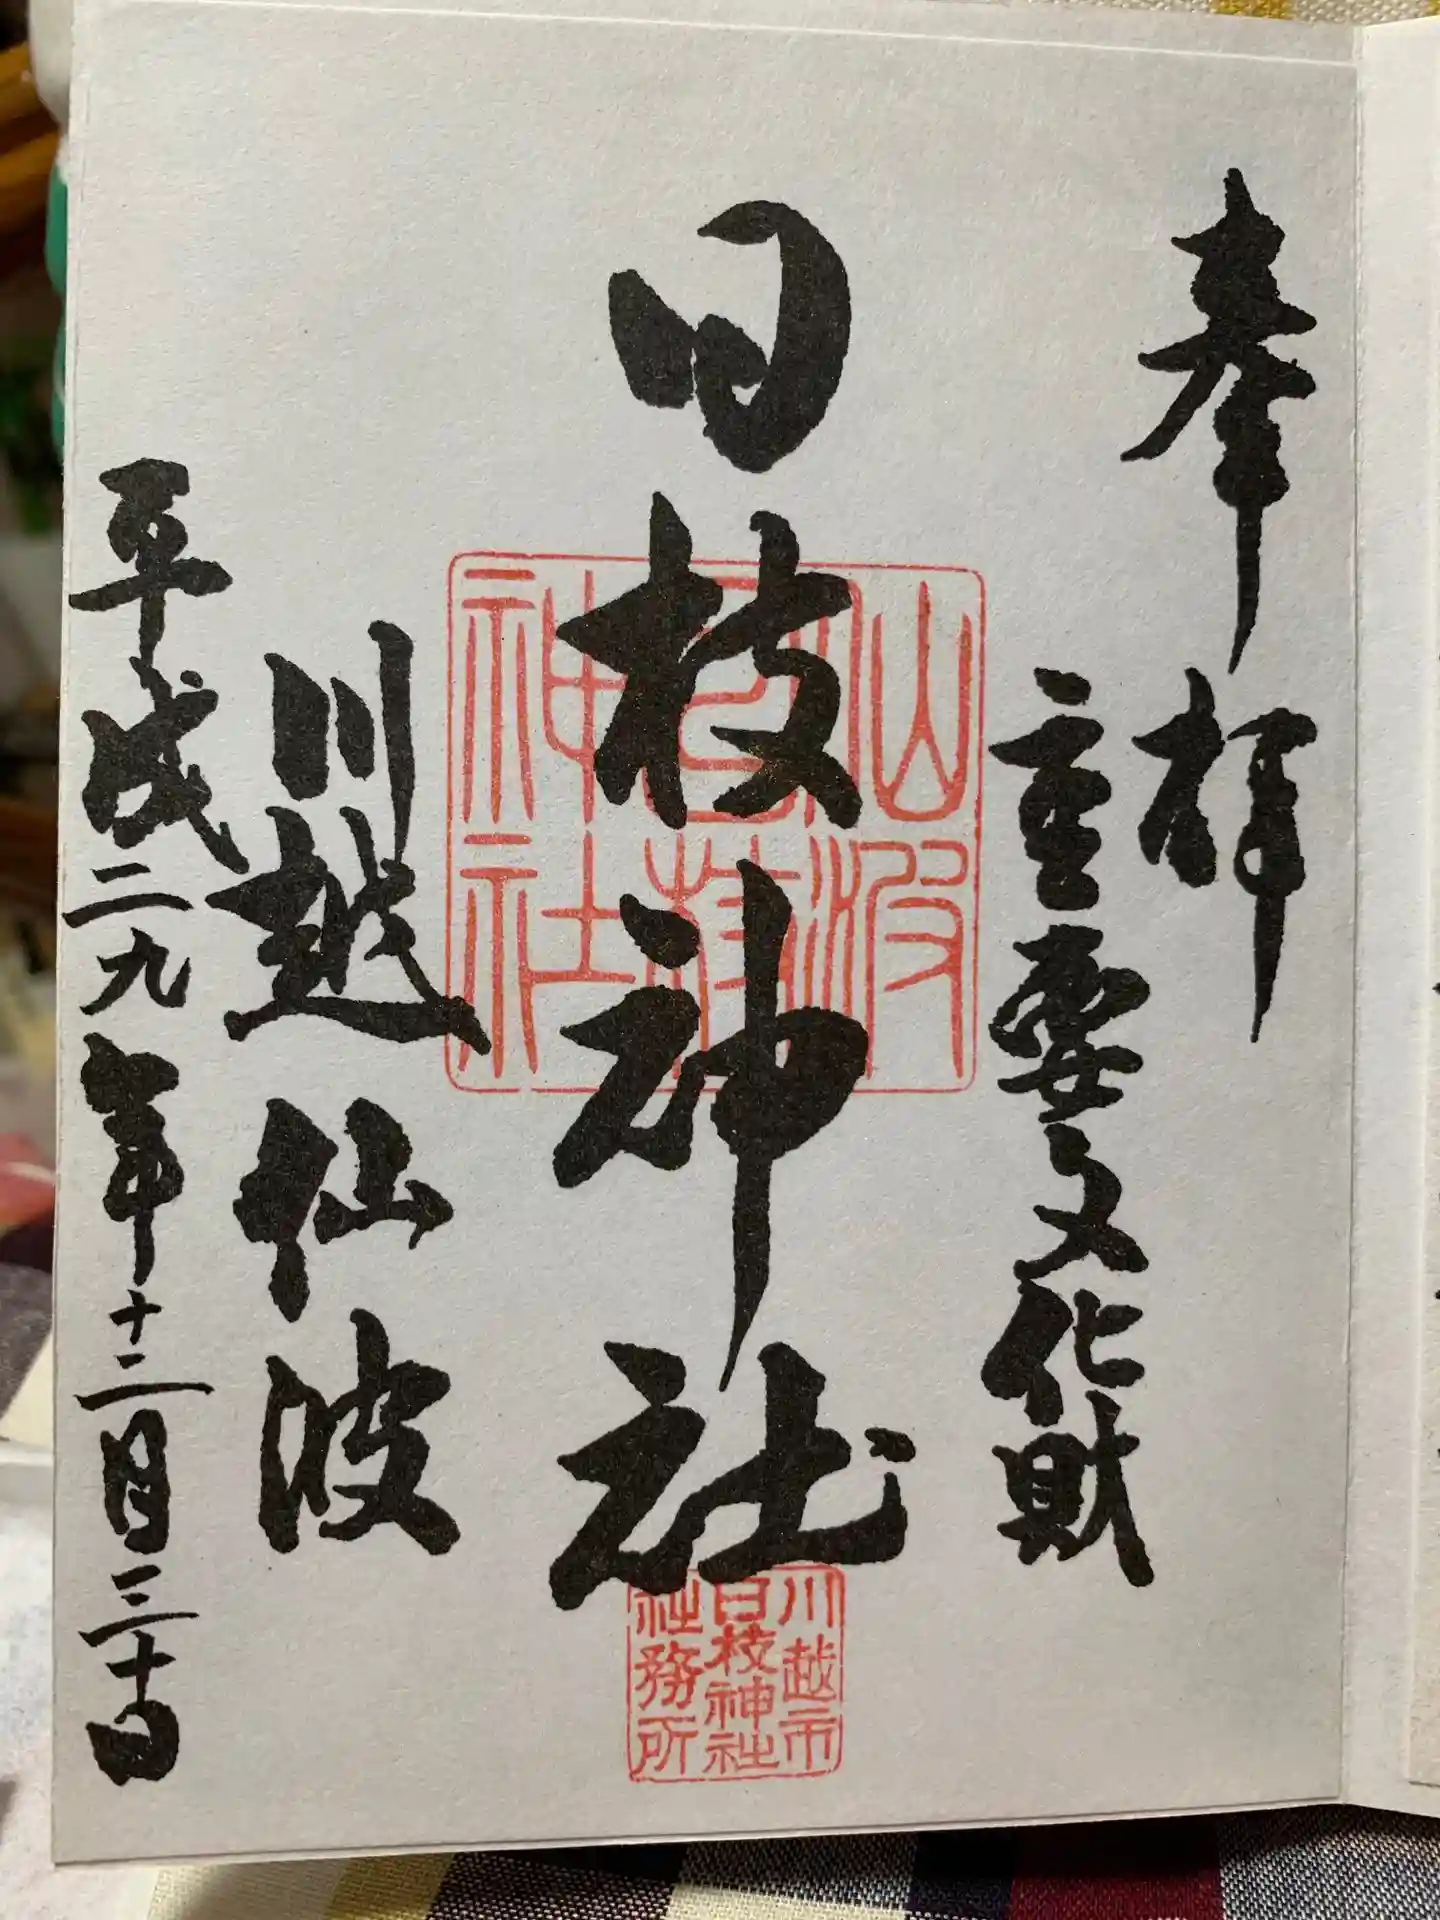 奉拝
重要文化財
日枝神社
川越仙波
平成二九年十二月三十日
仙波
日枝
神社
川越市
日枝神社
社務所